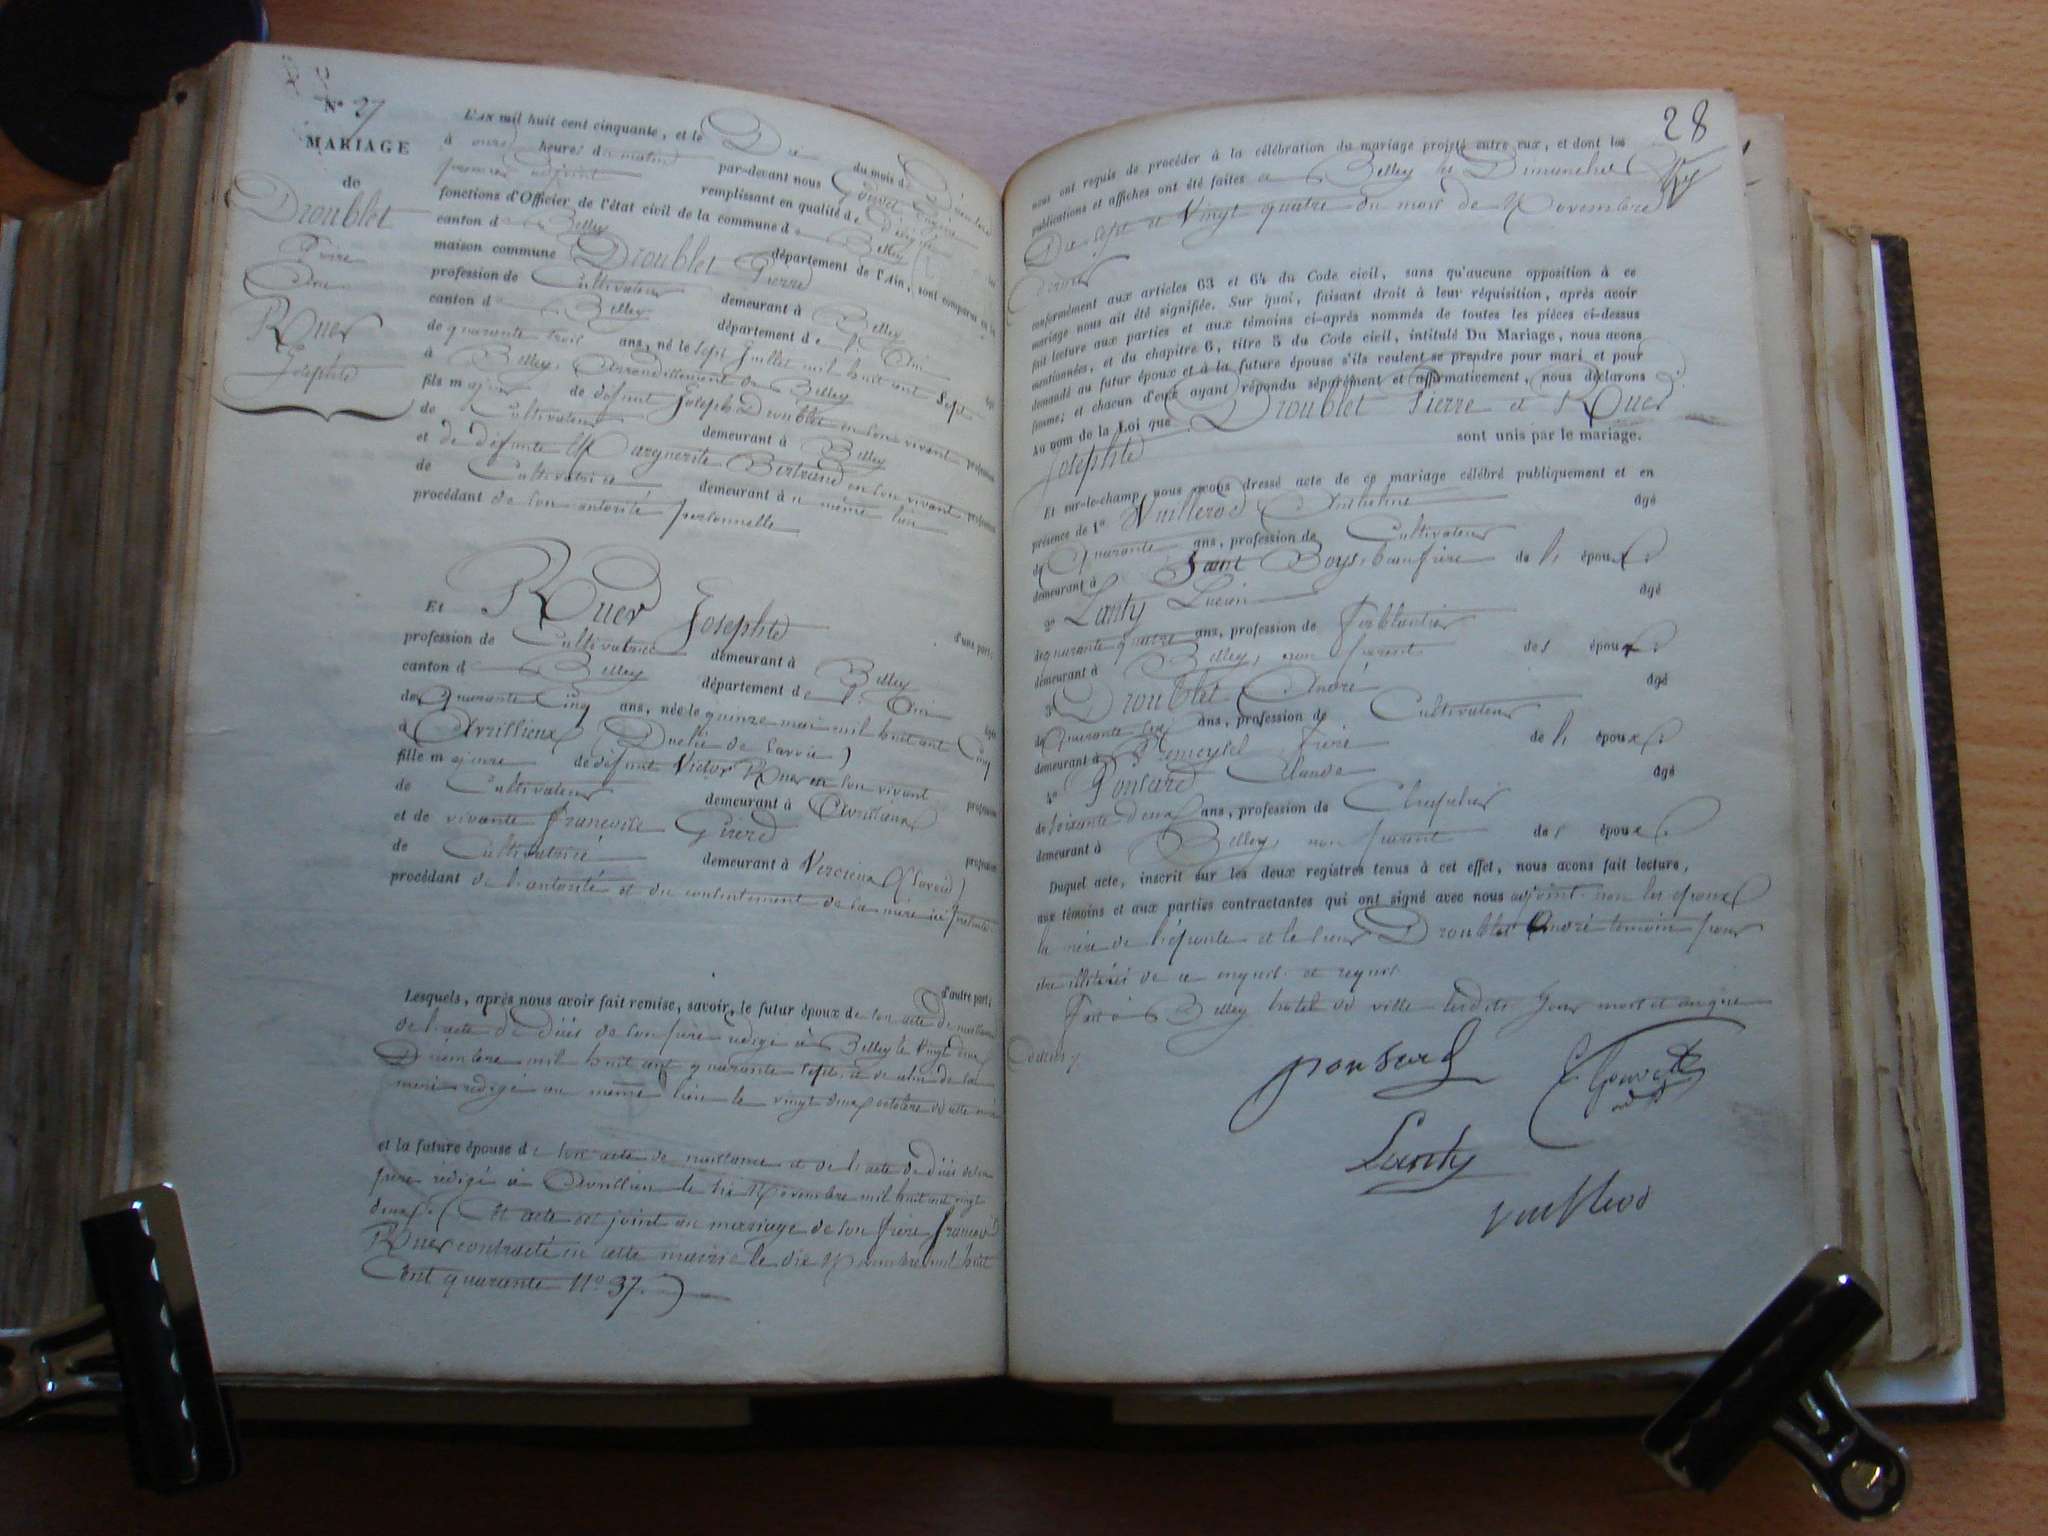 N° 27
MARIAGE
de
Droublet
Pierre
Avec
Rouer
Josephte
L'AN mil huit cent cinquante, et le Dix du mois de Décembre
à onze heures du matin par-devant nous
premier adjoint remplissant en qualité de
fonctions d'Officier de l'état civil de la commune de Belley
canton de Belley département de l'Ain, sont comparus en la
maison commune Droublet Pierre
profession de Cultivateur demeurant à Belley
canton de Belley département de l'Ain
de quarante trois ans, né le sept Juillet mil huit cent sept
à Belley, Arrondissement de Belley
fils majeur de défunt Joseph Droublet en son vivant profession
de Cultivateur demeurant à Belley
et de défunte Marguerite Bertrand en son vivant profession
de Cultivatrice demeurant à même lieu
procédant de son autorité personnelle
d'une part;
Et Rouer Josephte
profession de Cultivatrice demeurant à Belley
canton de Belley département de l'Ain
de Quarante Cinq ans, née le quinze mai mil huit cent Cinq
à Avrillieux (Duché de Savoie)
fille majeure de défunt Victor Rouer en son vivant profession
de Cultivateur demeurant à Avrilieux
et de vivante Françoise Girerd profession
de Cultivatrice demeurant à Vercieux (Savoie)
procédant de l'autorité et du contentement de sa mère ici présente
d'autre part;
Lesquels, après nous avoir fait remise, savoir, le futur époux de son acte de naissance
de l'acte de Décès de son père rédigé à Belley le vingt deux
Décembre mil huit cent quarante sept, et de celui de sa
mère rédigé au même lieu le vingt deux octobre de cette année
et la future épouse de son acte de naissance et de l'acte de Décès de son
père rédigé à Avrillieu le six Novembre mil huit cent vingt
deux. (Cet acte est joint au mariage de son frère François
Rouer contracté en cette mairie le dix Novembre mil huit
Cent quarante N° 37.)
28
nous ont requis de procéder à la célébration du mariage projeté entre eux, et dont les
publications et affiches ont été faites à Belley les Dimanches
Dix sept et Vingt quatre du mois de Novembre
dernier
conformément aux articles 63 et 64 du Code civil, sans qu'aucune opposition à ce
mariage nous ait été signifiée. Sur quoi, faisant droit à leur réquisition, après avoir
fait lecture aux parties et aux témoins ci-après nommés de toutes les pièces ci-dessus
mentionnées, et du chapitre 6, titre 5 du Code civil, intitulé Du Mariage, nous avons
demandé au futur époux et à la future épouse s'ils veulent se prendre pour mari et pour
femme; et chacun d'eux ayant répondu séparément et affirmativement, nous déclarons
Au nom de la Loi que Droublet Pierre et Rouer
Josephte sont unis par le mariage.
Et sur-le-champ nous avons dressé acte de ce mariage célébré publiquement et en
présence de 1° Vuillerod Anthelme âgé
de Quarante ans, profession de Cultivateur
demeurant à Saint Boys, beaufrère de l' époux
2° Lanty Lucien âgé
de quarante quatre ans, profession de Ferblantier
demeurant à Belley, non parent des époux
3° Droublet André âgé
de Quarante six ans, profession de Cultivateur
demeurant à Prémeysel frère de l' époux
4° Ponsard Claude âgé
de soixante deux ans, profession de Chapelier
demeurant à Belley, non parent des époux
Duquel acte, inscrit sur les deux registres tenus à cet effet, nous avons fait lecture,
aux témoins et aux parties contractantes qui ont signé avec nous adjoint non les époux
la mère de l'épouse et le sieur Droublet André temoin pour
être illitérés de ce enquis et requis.
Fait à Belley hôtel de ville lesdits Jour mois et an que
dessus
ponsard
Lanty
vuillerod